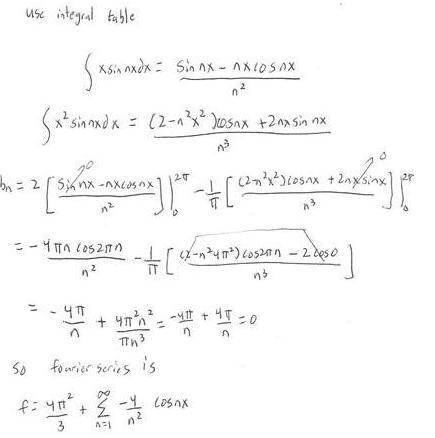 use integral table
∫ x sin nx dx = (sin nx - nx cos nx) / n²
∫ x² sin nx dx = ((2 - n²x²) cos nx + 2nx sin nx) / n³
bn = 2 [ (sin nx - nx cos nx) / n² ] |₀^2π - 1/π [ ((2 - n²x²) cos nx + 2nx sin nx) / n³ ] |₀^2π
= - 4πn cos 2πn / n² - 1/π [ ((2 - n²4π²) cos 2πn - 2 cos 0) / n³ ]
= - 4π/n + 4π²n² / πn³ = -4π/n + 4π/n = 0
so fourier series is
f = 4π²/3 + ∑_{n=1}^∞ -4/n² cos nx